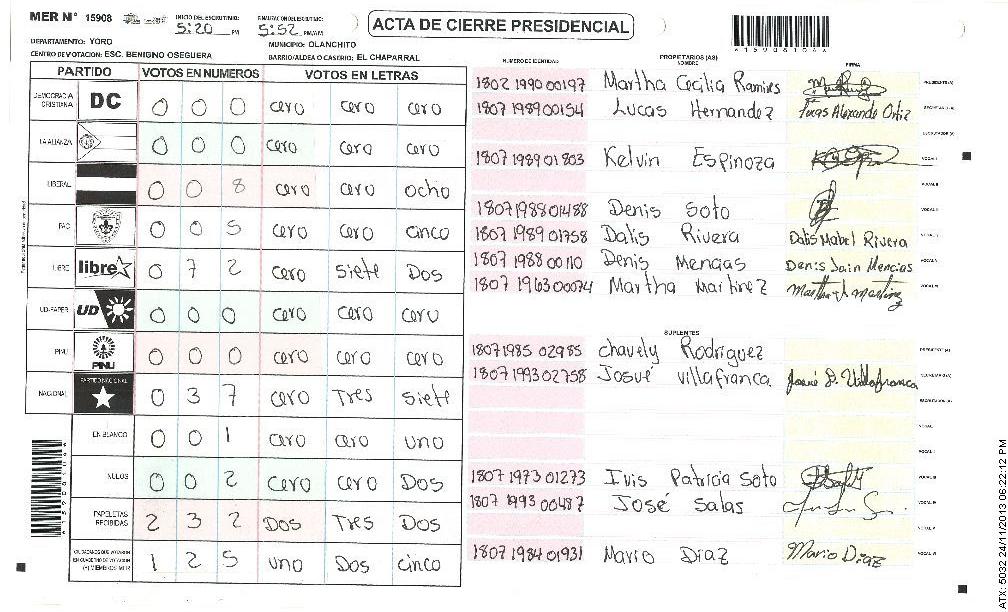 MER N° 15908 INICIO DEL ESCRUTINIO: 5:20 PM FINALIZACION DEL ESCRUTINIO: 5:52 PM/AM ACTA DE CIERRE PRESIDENCIAL
DEPARTAMENTO: YORO MUNICIPIO: OLANCHITO
CENTRO DE VOTACION: ESC. BENIGNO OSEGUERA BARRIO/ALDEA O CASERIO: EL CHAPARRAL
PARTIDO VOTOS EN NUMEROS VOTOS EN LETRAS
DEMOCRACIA CRISTIANA DC 0 0 0 cero cero cero
LA ALIANZA 0 0 0 cero cero cero
LIBERAL 0 0 8 cero cero ocho
PAC 0 0 5 cero cero cinco
LIBRE libre 0 7 2 cero siete Dos
UD-FAPER UD 0 0 0 cero cero cero
PINU PINU 0 0 0 cero cero cero
NACIONAL PARTIDO NACIONAL 0 3 7 cero Tres siete
EN BLANCO 0 0 1 cero cero uno
NULOS 0 0 2 cero cero Dos
PAPELETAS RECIBIDAS 2 3 2 Dos Tres Dos
CIUDADANOS QUE VOTARON EN CUADERNO DE VOTACION (+) MIEMBROS MER 1 2 5 uno Dos cinco
PROPIETARIOS (AS)
NUMERO DE IDENTIDAD NOMBRE FIRMA
1802 1990 00197 Martha Cecilia Ramires PRESIDENTE(A)
1807 1989 00154 Lucas Hernandez SECRETARIO(A)
ESCRUTADOR (A)
1807 1989 01803 Kelvin Espinoza VOCAL I
VOCAL II
1807 1988 01488 Denis Soto
1807 1989 01758 Dalis Rivera Dalis Mabel Rivera
1807 1988 00110 Denis Mencias Denis Jain Mencias
1807 1963 00074 Martha Martinez
SUPLENTES
1807 1985 02985 Chavely Rodriguez PRESIDENTE(A)
1807 1993 02758 Josué Villafranca SECRETARIO(A)
ESCRUTADOR(A)
VOCAL I
1807 1973 01273 Ivis Patricia Soto
1807 1993 00487 José Salas
1807 1984 01931 Mario Diaz Mario Diaz
A15908104
ATX: 5032 24/11/2013 06:22:12 PM